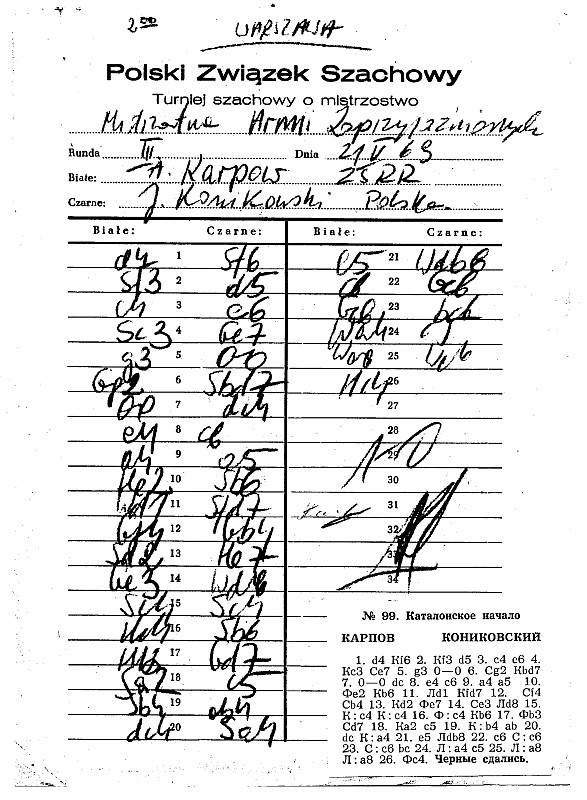 2 00 WARSZAWA
Polski Związek Szachowy
Turniej szachowy o mistrzostwo
Mistrzostwa Armii Zaprzyjaźnionych
Runda III Dnia 21 V 69
Białe: A. Karpow ZSRR
Czarne: J. Konikowski Polska
Białe: Czarne: Białe: Czarne:
d4 1 Sf6
Sf3 2 d5
c4 3 e6
Sc3 4 Ge7
g3 5 00
Gg2 6 Sbd7
00 7 dc4
e4 8 c6
a4 9 a5
He2 10 Sb6
11 Sfd7
Gf4 12 Gb4
Sd2 13 He7
Ge3 14 Wd8
Sc4 15 Sc4
Hc4 16 Sb6
Hb3 17 Gd7
Sa2 18 c5
Sb4 19 ab4
dc4 20 Sa4
e5 21 Wdb8
c6 22 Gc6
Gc6 23 bc6
Wa4 24
Wa8 25
Hc4 26
27
28
29
1-0
30
31
32
33
34
№ 99. Каталонское начало
КАРПОВ КОНИКОВСКИЙ
1. d4 Kf6 2. Kf3 d5 3. c4 e6 4.
Kc3 Ce7 5. g3 0—0 6. Cg2 Kbd7
7. 0—0 dc 8. e4 c6 9. a4 a5 10.
Фe2 Kb6 11. Лd1 Kfd7 12. Cf4
Cb4 13. Kd2 Фe7 14. Ce3 Лd8 15.
K:c4 K:c4 16. Ф:c4 Kb6 17. Фb3
Cd7 18. Ka2 c5 19. K:b4 ab 20.
dc K:a4 21. e5 Лdb8 22. c6 C:c6
23. C:c6 bc 24. Л:a4 c5 25. Л:a8
Л:a8 26. Фc4. Черные сдались.